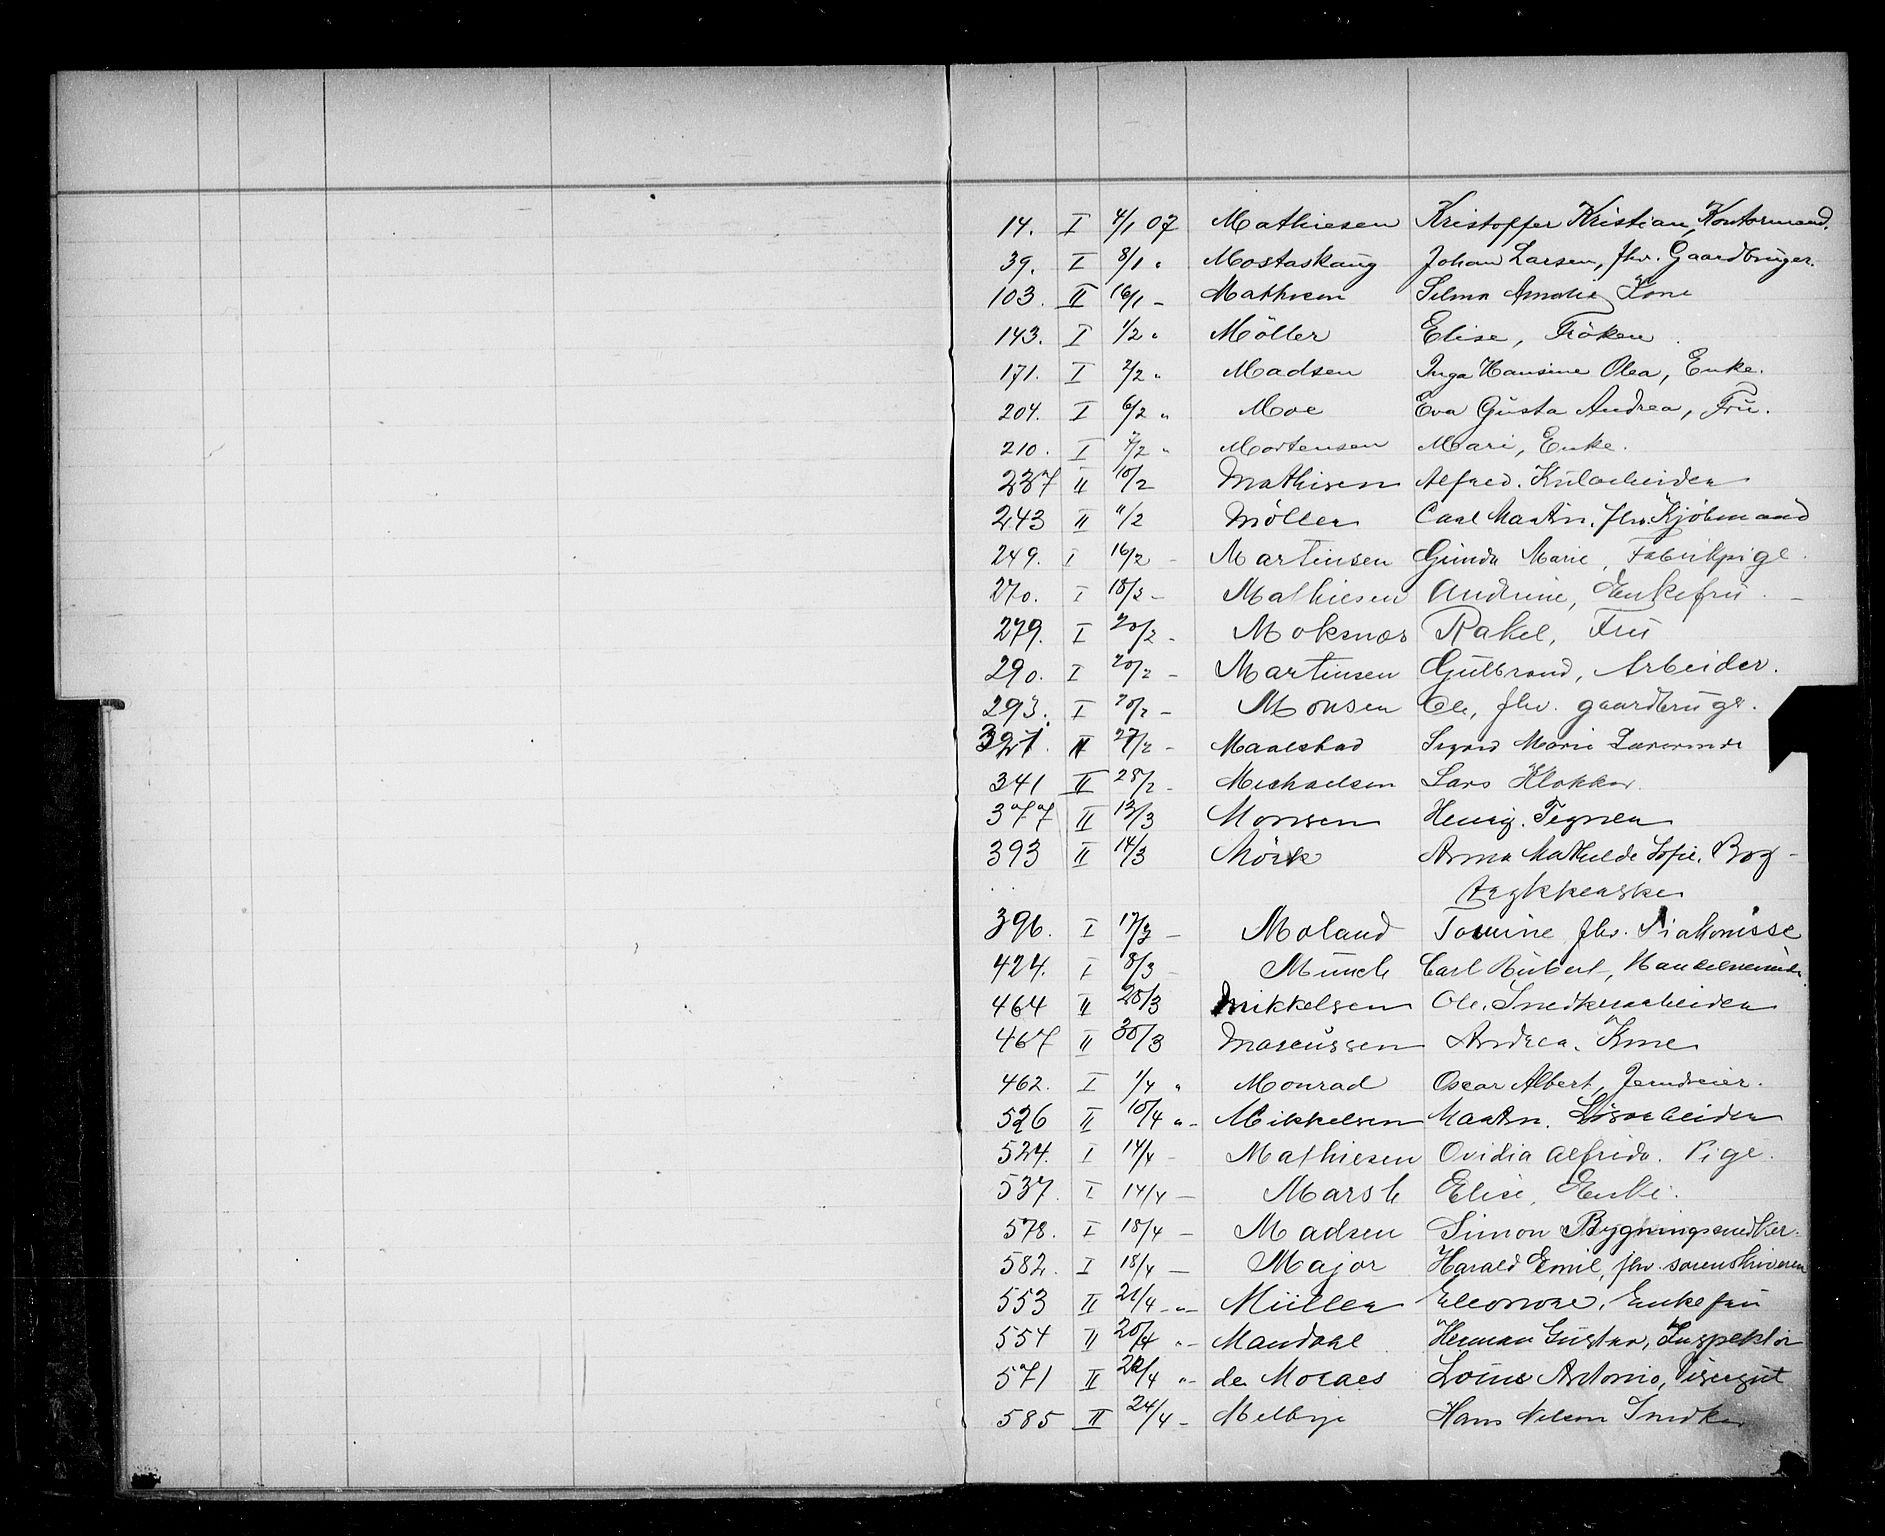 14. I 4/1 07 Mathiesen Kristoffer Kristian, Kontormand.
39. I 8/1 " Mostaskaug Johan Larsen, fhv. Gaardbruger.
103. II 16/1 - Mathisen Selma Amalie, Kone
143. I 1/2 " Möller Elise, Fröken.
171. I 2/2 " Madsen Inga Hansine Olea, Enke.
204. I 6/2 " Moe Eva Gusta Andrea, Fru.
210. I 7/2 " Mortensen Mari, Enke.
237 II 10/2 Mathisen Alfred. Kularbeider
243 II 11/2 Møller Carl Martin. fhv. Kjöbmand
249. I 16/2 - Martinsen Gunda Marie, Fabrikpige.
270. I 18/2 - Mathiesen Andrine, Enkefru. -
279. I 20/2 - Moksnæs Rakel, Fru
290. I 20/2 - Martinsen Gulbrand, Arbeider.
293. I 20/2 - Monsen Ole, fhv. gaardbruger.
321. II 27/2 - Maalstad Sigrid Marie Lærerinde
341 II 28/2 - Michaelsen Lars Klokker.
377 II 13/3 Monsen Henrig. Tegner
393 II 14/3 Mörk Anna Mathilde Sofie. Bog-
trykkerske
396. I 17/3 - Moland Tomine fhv. Diakonisse
424. I 8/3 - Munch Carl Hubert,
464 II 25/3 Mikkelsen Ole. Snedkerarbeider
467 II 30/3 Marcussen Andrea. Kone
462. I 1/4 " Monrad Oscar Albert,
526 II 10/4 "- Mikkelsen Martin. Løsarbeider
524. I 14/4 - Mathiesen Ovidia Alfrida. Pige.
537. I 14/4 - Marsh Elise, Enke.
578. I 18/4 - Madsen Simon Bygningsnedker.
582. I 18/4 - Major Harald Emil, fhv. sorenskriver
553 II 21/4 -"- Müller Eleonore. Enkefru
554 II 20/4 "- Mandahl Herman Gustav, Inspektör
571 II 22/4 "- de Moraes Louis Antonio, Visergut
585 II 24/4 - Melbye Hans Nilsen Snedker